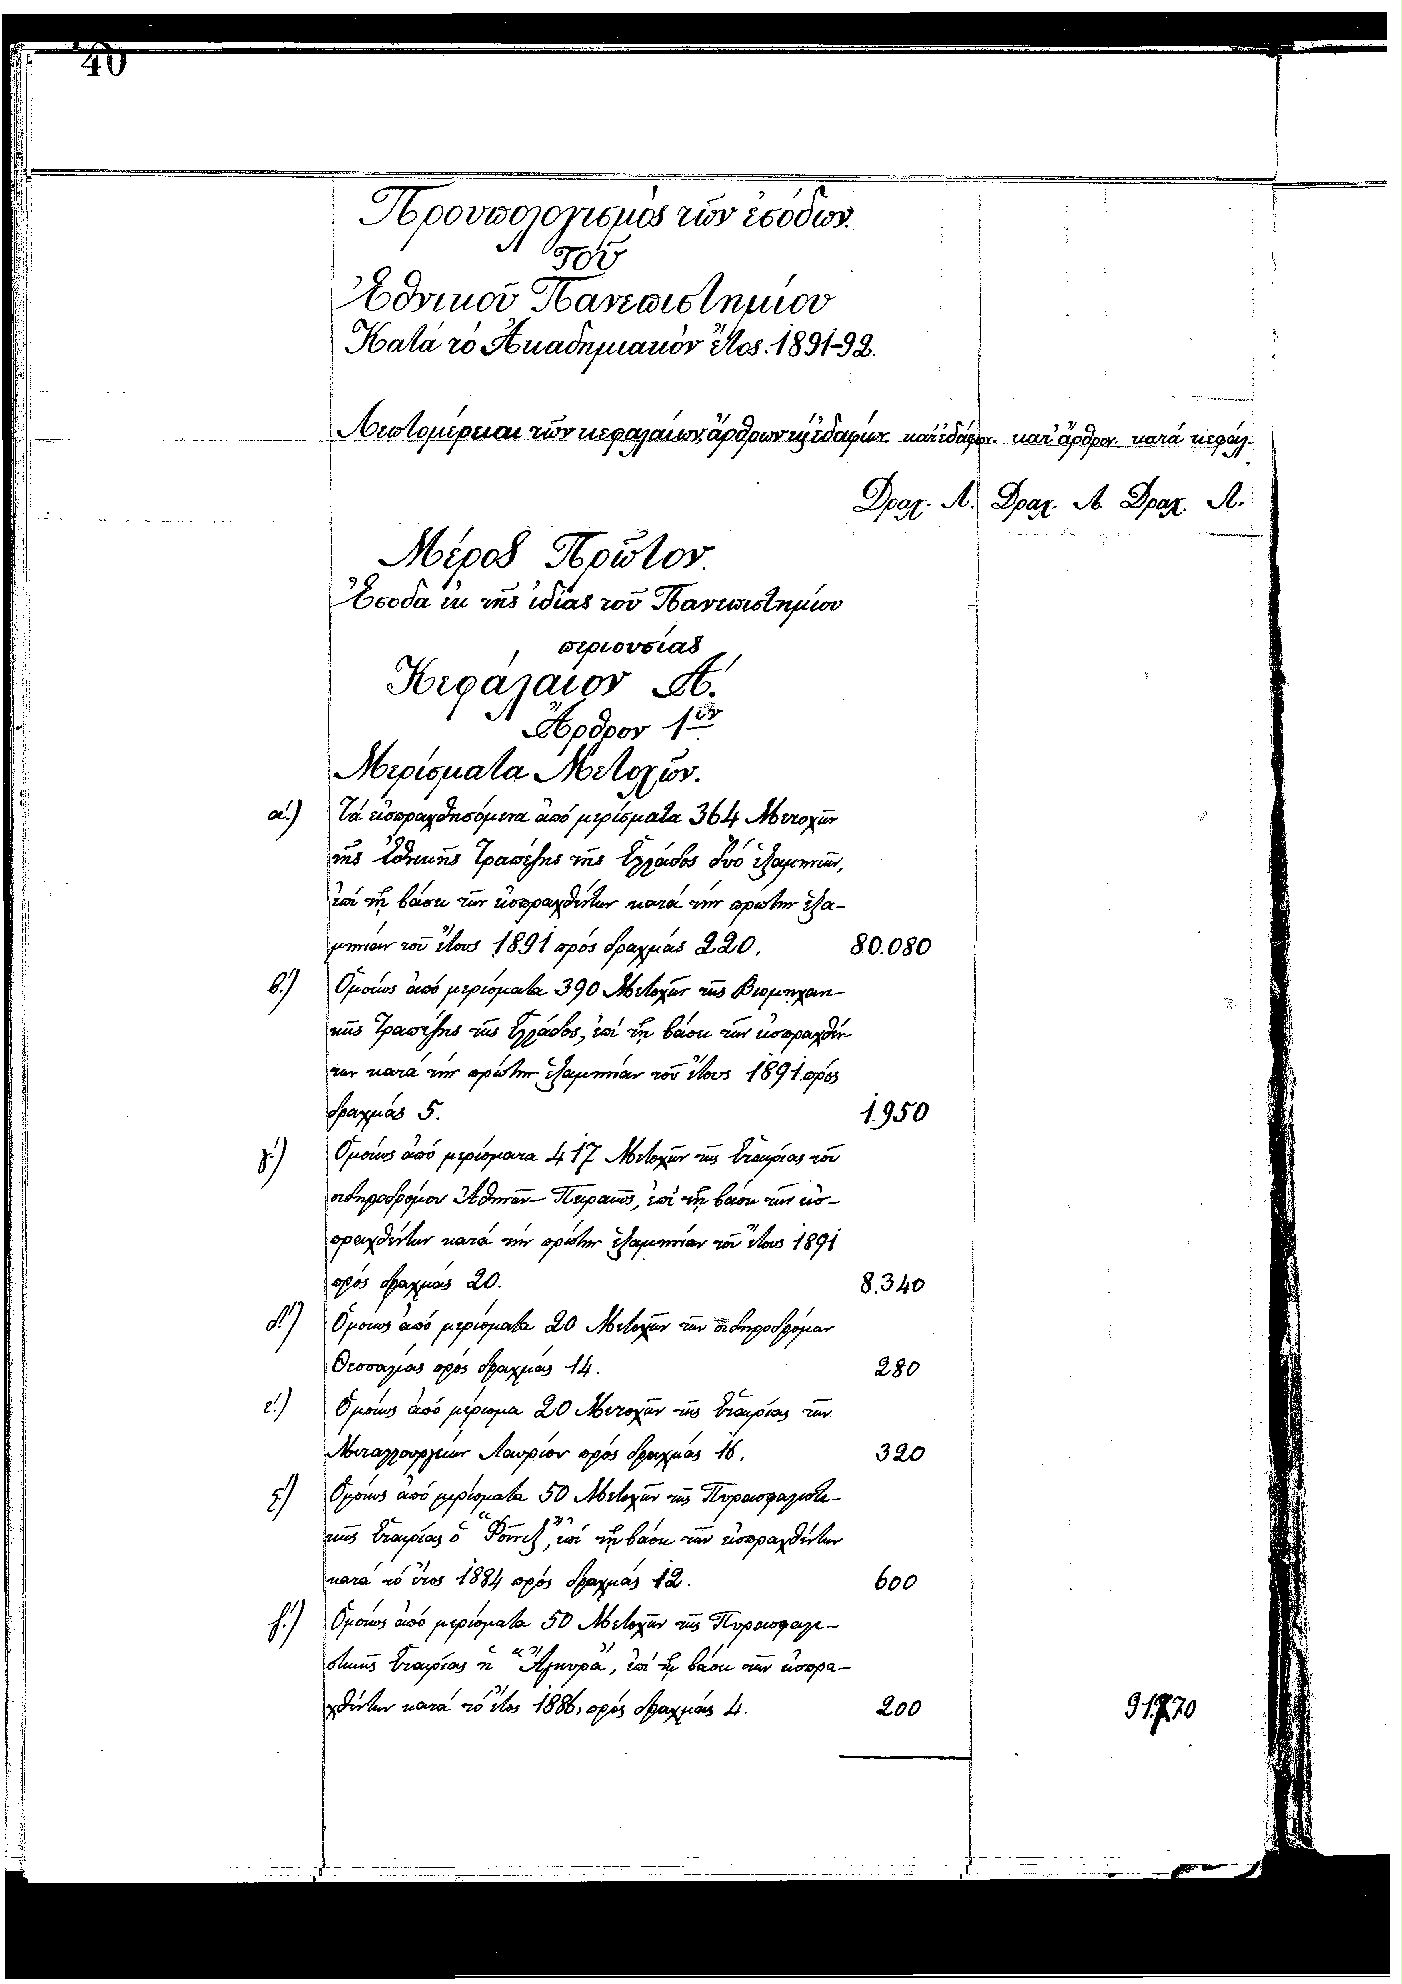 40
Προϋπολογισμὸς τῶν ἐσόδων
τοῦ
Ἐθνικοῦ Πανεπιστημίου
Κατὰ τὸ Ἀκαδημιακὸν ἔτος 1891-92.
Λεπτομέρειαι τῶν κεφαλαίων, ἄρθρων κ ἐδαφίων. κατ' ἐδάφιον. κατ' ἄρθρον κατὰ κεφάλ.
Δραχ. Λ. Δραχ. Λ. Δραχ. Λ.
Μέρος Πρῶτον.
Ἔσοδα ἐκ τῆς ἰδίας τοῦ Πανεπιστημίου
περιουσίας
Κεφάλαιον Α΄.
Ἄρθρον 1ον
Μερίσματα Μετοχῶν.
α΄.) Τὰ εἰσπραχθησόμενα ἀπὸ μερίσματα 364 Μετοχῶν
τῆς Ἐθνικῆς Τραπέζης τῆς Ἑλλάδος δύο ἑξαμηνιῶν,
ἐπὶ τῇ βάσει τῶν εἰσπραχθέντων κατὰ τὴν πρώτην ἑξα-
μηνίαν τοῦ ἔτους 1891 πρὸς δραχμὰς 220. 80.080
β΄.) Ὁμοίως ἀπὸ μερίσματα 390 Μετοχῶν τῆς Βιομηχανι-
κῆς Τραπέζης τῆς Ἑλλάδος, ἐπὶ τῇ βάσει τῶν εἰσπραχθέν-
των κατὰ τὴν πρώτην ἑξαμηνίαν τοῦ ἔτους 1891 πρὸς
δραχμὰς 5. 1.950
γ΄.) Ὁμοίως ἀπὸ μερίσματα 417 Μετοχῶν τῆς Ἑταιρίας τοῦ
σιδηροδρόμου Ἀθηνῶν-Πειραιῶς, ἐπὶ τῇ βάσει τῶν εἰσ-
πραχθέντων κατὰ τὴν πρώτην ἑξαμηνίαν τοῦ ἔτους 1891
πρὸς δραχμὰς 20. 8.340
δ΄.) Ὁμοίως ἀπὸ μερίσματα 20 Μετοχῶν τῶν σιδηροδρόμων
Θεσσαλίας πρὸς δραχμὰς 14. 280
ε΄.) Ὁμοίως ἀπὸ μέρισμα 20 Μετοχῶν τῆς Ἑταιρίας τῶν
Μεταλλουργείων Λαυρίου πρὸς δραχμὰς 16. 320
ϛ΄.) Ὁμοίως ἀπὸ μερίσματα 50 Μετοχῶν τῆς Πυρασφαλιστι-
κῆς Ἑταιρίας ὁ "Φοῖνιξ", ἐπὶ τῇ βάσει τῶν εἰσπραχθέντων
κατὰ τὸ ἔτος 1884 πρὸς δραχμὰς 12. 600
ζ΄.) Ὁμοίως ἀπὸ μερίσματα 50 Μετοχῶν τῆς Πυρασφαλι-
στικῆς Ἑταιρίας ἡ "Ἄγκυρα", ἐπὶ τῇ βάσει τῶν εἰσπρα-
χθέντων κατὰ τὸ ἔτος 1886, πρὸς δραχμὰς 4. 200 91.770